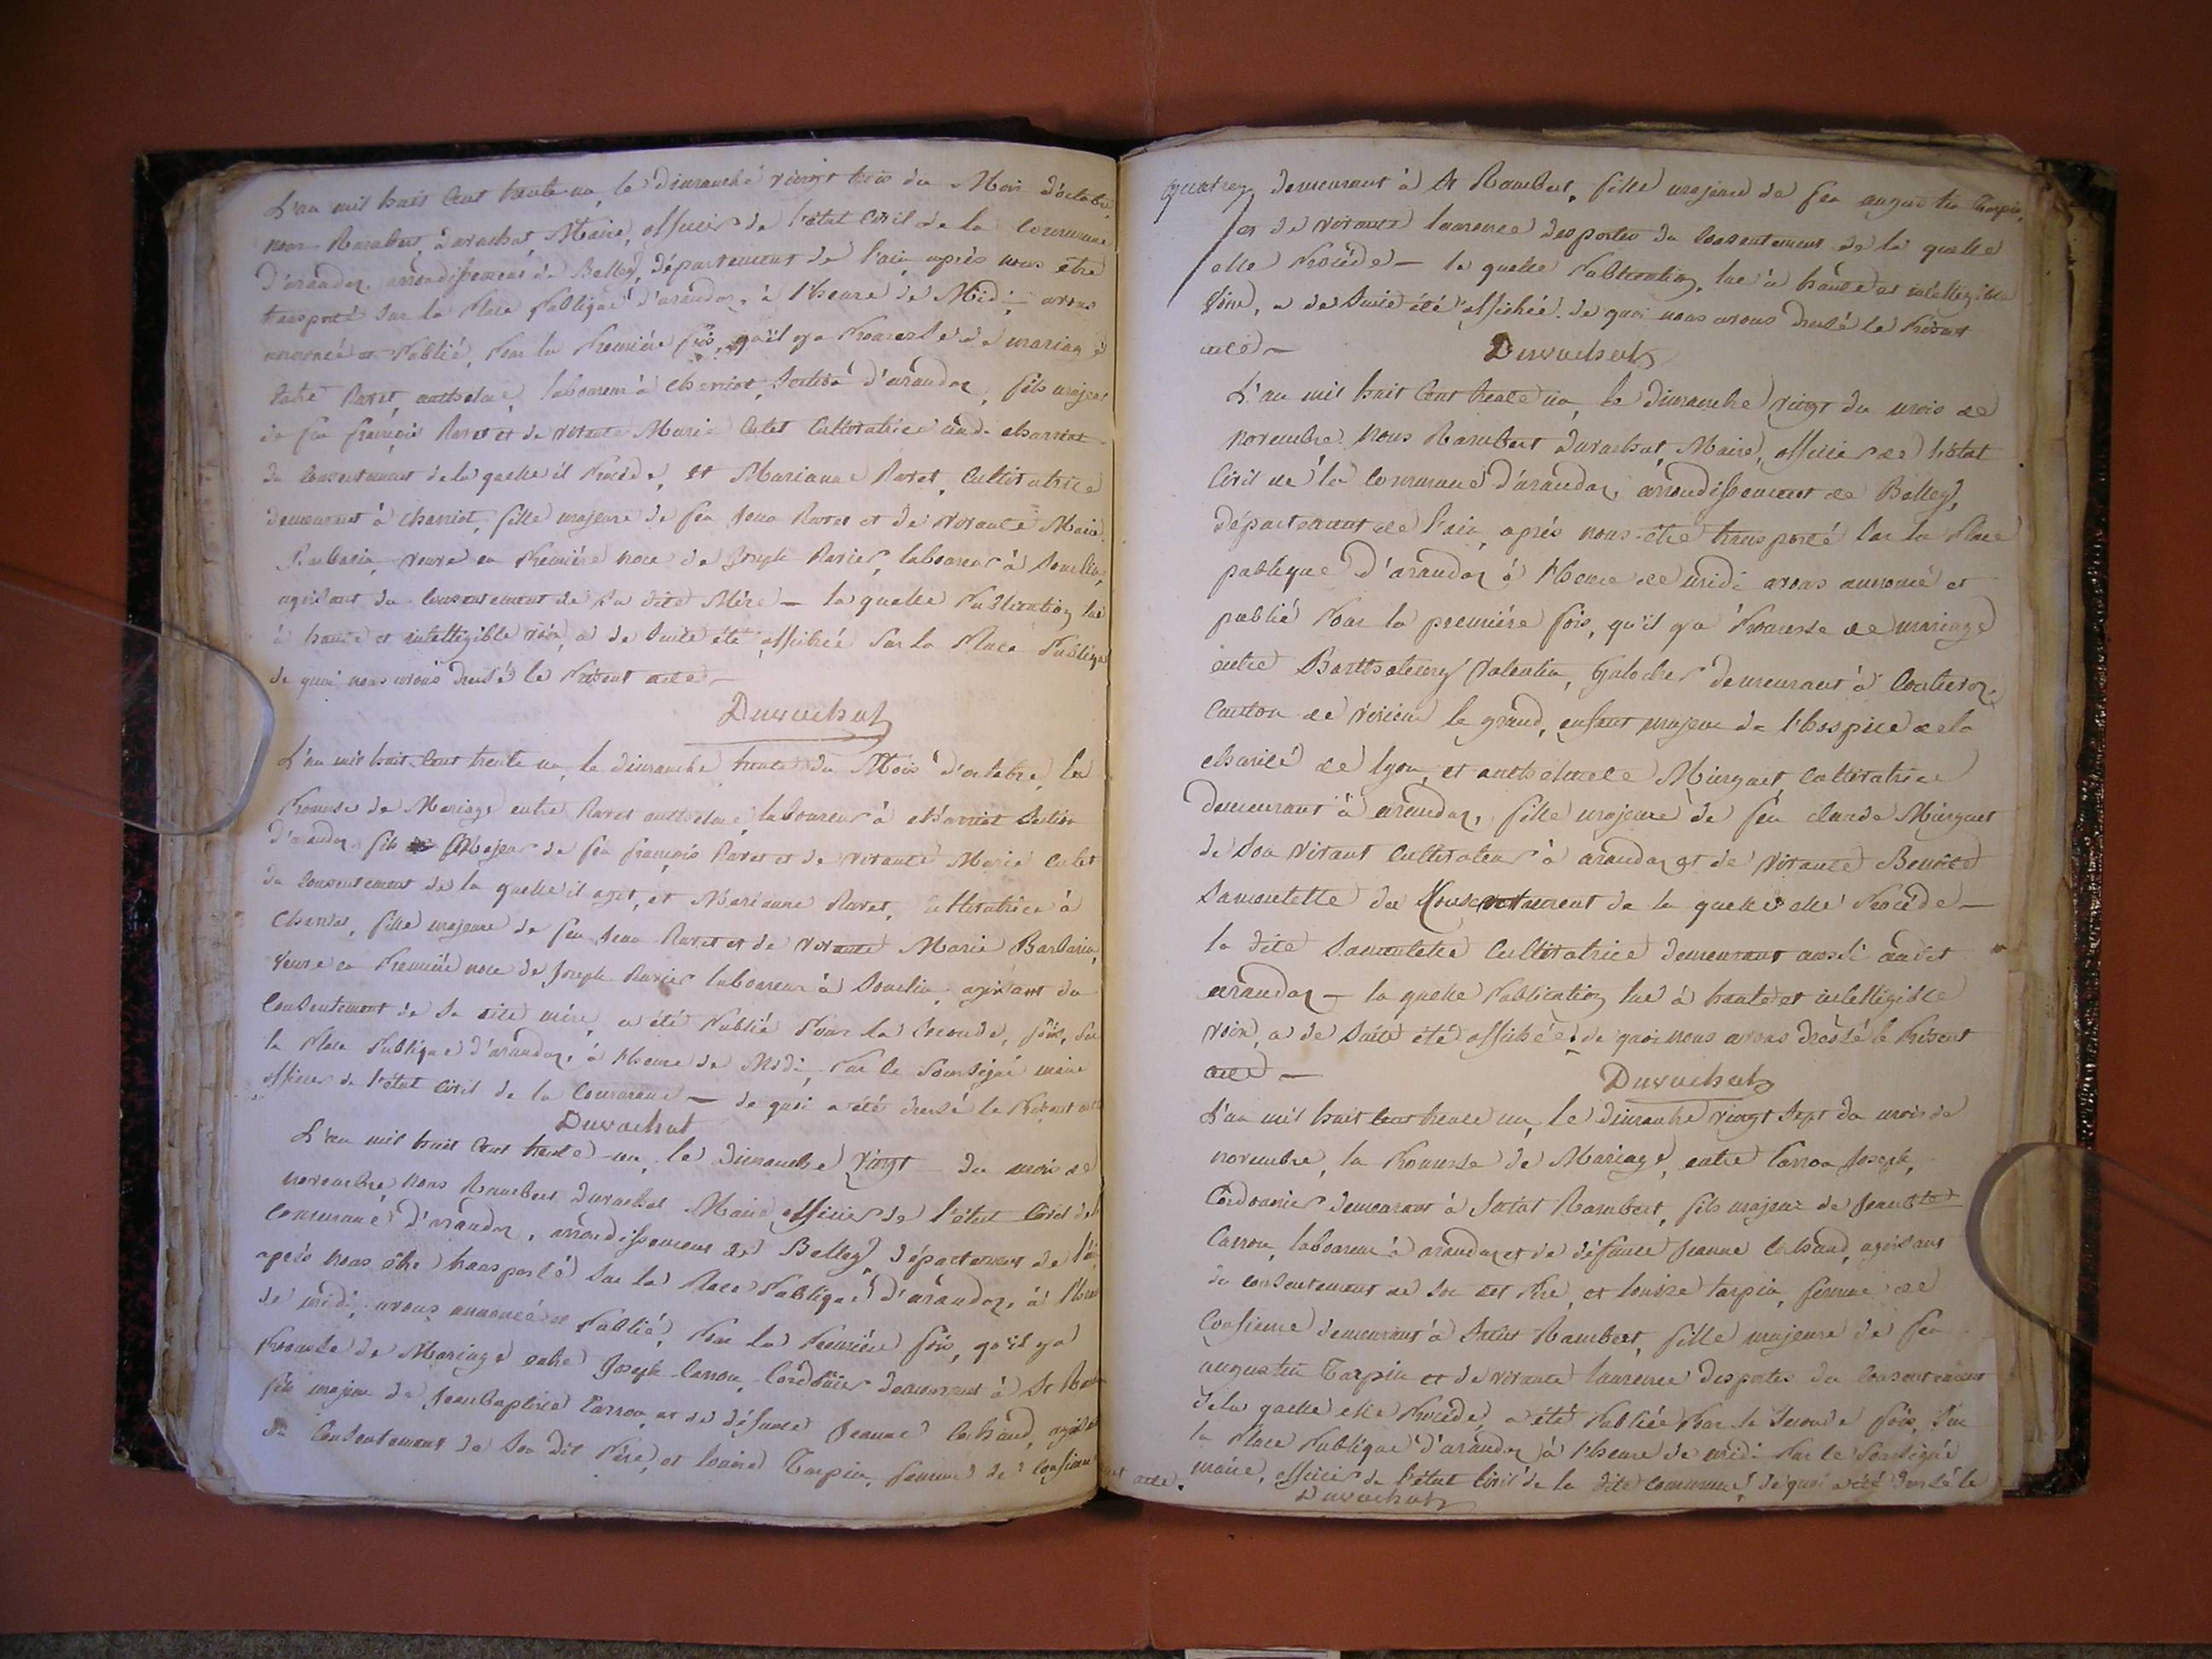 L'an mil huit Cent trente un, le dimanche vingt trois du Mois d'octobre,
nous Rambert Duvachat Maire, officier de l'état Civil de la Commune
d'arandaz, arrondissement de Belley, département de l'ain, après nous être
transporté sur la Place Publique d'arandaz, à l'heure de Midi, avons
annoncé et Publié, Pour la Premiére fois, qu'il y a Promesse de mariage
entre Ravet anthelme, laboureur à charriot, section d'arandaz, fils majeur
de feu françois Ravet et de vivante Marie Culet Cultivatrice aud. charriot
du consentement de la quelle il Procède, et Marianne Ravet, Cultivatrice
demeurant à charriot, fille majeure de feu Jean Ravet et de vivante Marie
Barbarin, veuve en Premiére noce de Joseph Ravier, laboureur à Souclin,
agissant du Consentement de sa dite Mére — la quelle Publication lue
à haute et intelligible voix, a de suite été affichée sur la Place Publique
de quoi nous avons dressé le Présent acte —
Duvachat
L'an mil huit Cent trente un, le dimanche trente du Mois d'octobre, la
Promesse de Mariage entre Ravet anthelme, laboureur à charriot section
d'arandaz, fils Majeur de feu françois Ravet et de vivante Marie Culet
du consentement de la quelle il agit, et Marianne Ravet, Cultivatrice à
charriot, fille majeure de feu Jean Ravet et de vivante Marie Barbarin,
veuve en Premiére noce de Joseph Ravier laboureur à Souclin, agissant du
Consentement de sa dite mére, a été Publié Pour la seconde fois, sur
la Place Publique d'arandaz, à l'heure de Midi, Par le soussigné maire
officier de l'état Civil de la Commune — de quoi a été dressé le Présent acte
Duvachat
L'an mil huit Cent trente un, le dimanche vingt du mois de
novembre nous Rambert Duvachat Maire officier de l'état Civil de la
Commune d'arandaz, arrondissement de Belley, département de l'ain
après nous être transporté sur la Place Publique d'arandaz, à l'heure
de midi, avons annoncé et Publié, Pour la Premiére fois, qu'il y a
Promesse de Mariage entre Joseph Carron, Cordonier demeurant à St Rambert
fils majeur de Jean Baptiste Carron et de défunte Jeanne agissant
du Consentement de son dit Pére, et Louise Tarpin, femme de Confiance
demeurant à St Rambert, fille majeure de feu augustin Tarpin,
et de vivante laurence desportes du consentement de la quelle
elle Procède — la quelle Publication, lue à haute et intelligible
voix, a de suite été affichée. de quoi nous avons dressé le Présent
acte —
Duvachat
L'an mil huit Cent trente un, le dimanche vingt du mois de
novembre. nous Rambert Duvachat, Maire, officier de l'état
Civil de la commune d'arandaz, arrondissement de Belley,
département de l'ain, après nous être transporté sur la Place
publique d'arandaz à l'heure de midi avons annoncé et
publié Pour la premiére fois, qu'il y a Promesse de mariage
entre Barthelemy Valentin, Galocher demeurant à
Canton de virieu le grand, enfant majeur de l'hospice de la
charité de lyon, et anthelmete Murguet, Cultivatrice
demeurant à arandaz, fille majeure de feu claude Murguet
de son vivant Cultivateur à arandaz et de vivante Benoite
Damoulette du Consentement de la quelle elle Procède —
la dite Damoulette Cultivatrice demeurant aussi audit
arandaz — la quelle Publication lue à haute et intelligible
voix, a de suite été affichée: de quoi nous avons dressé le Présent
acte —
Duvachat
L'an mil huit cent trente un, le dimanche vingt sept du mois de
novembre, la Promesse de Mariage, entre Carron Joseph,
Cordonnier demeurant à Saint Rambert, fils majeur de Jean Bte
Carron, laboureur à arandaz et de défunte Jeanne agissant
du consentement de son dit Pére, et Louise Tarpin, femme de
Confiance demeurant à Saint Rambert, fille majeure de feu
augustin Tarpin et de vivante laurence desportes du consentement
de la quelle elle Procède, a été Publiée Pour la seconde fois, sur
la Place Publique d'arandaz à l'heure de midi Par le soussigné
maire, officier de l'état Civil de la dite commune, de quoi a été dressé le
acte.
Duvachat